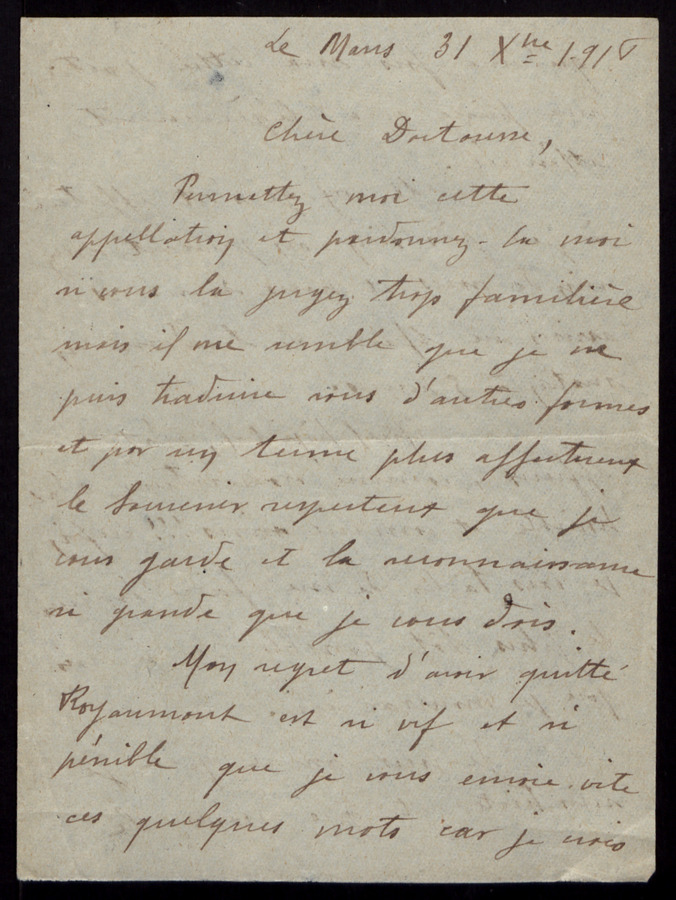 Le Mans 31 Xbre 1918
Chère Doctoresse,
Permettez-moi cette
appellation et pardonnez-la moi
si vous la jugez trop familière
mais il me semble que je ne
puis traduire sous d'autres formes
et par un terme plus affectueux
le souvenir respectueux que je
vous garde et la reconnaissance
si grande que je vous dois.
Mon regret d'avoir quitté
Royaumont est si vif et si
pénible que je vous envoie vite
ces quelques mots car je crois